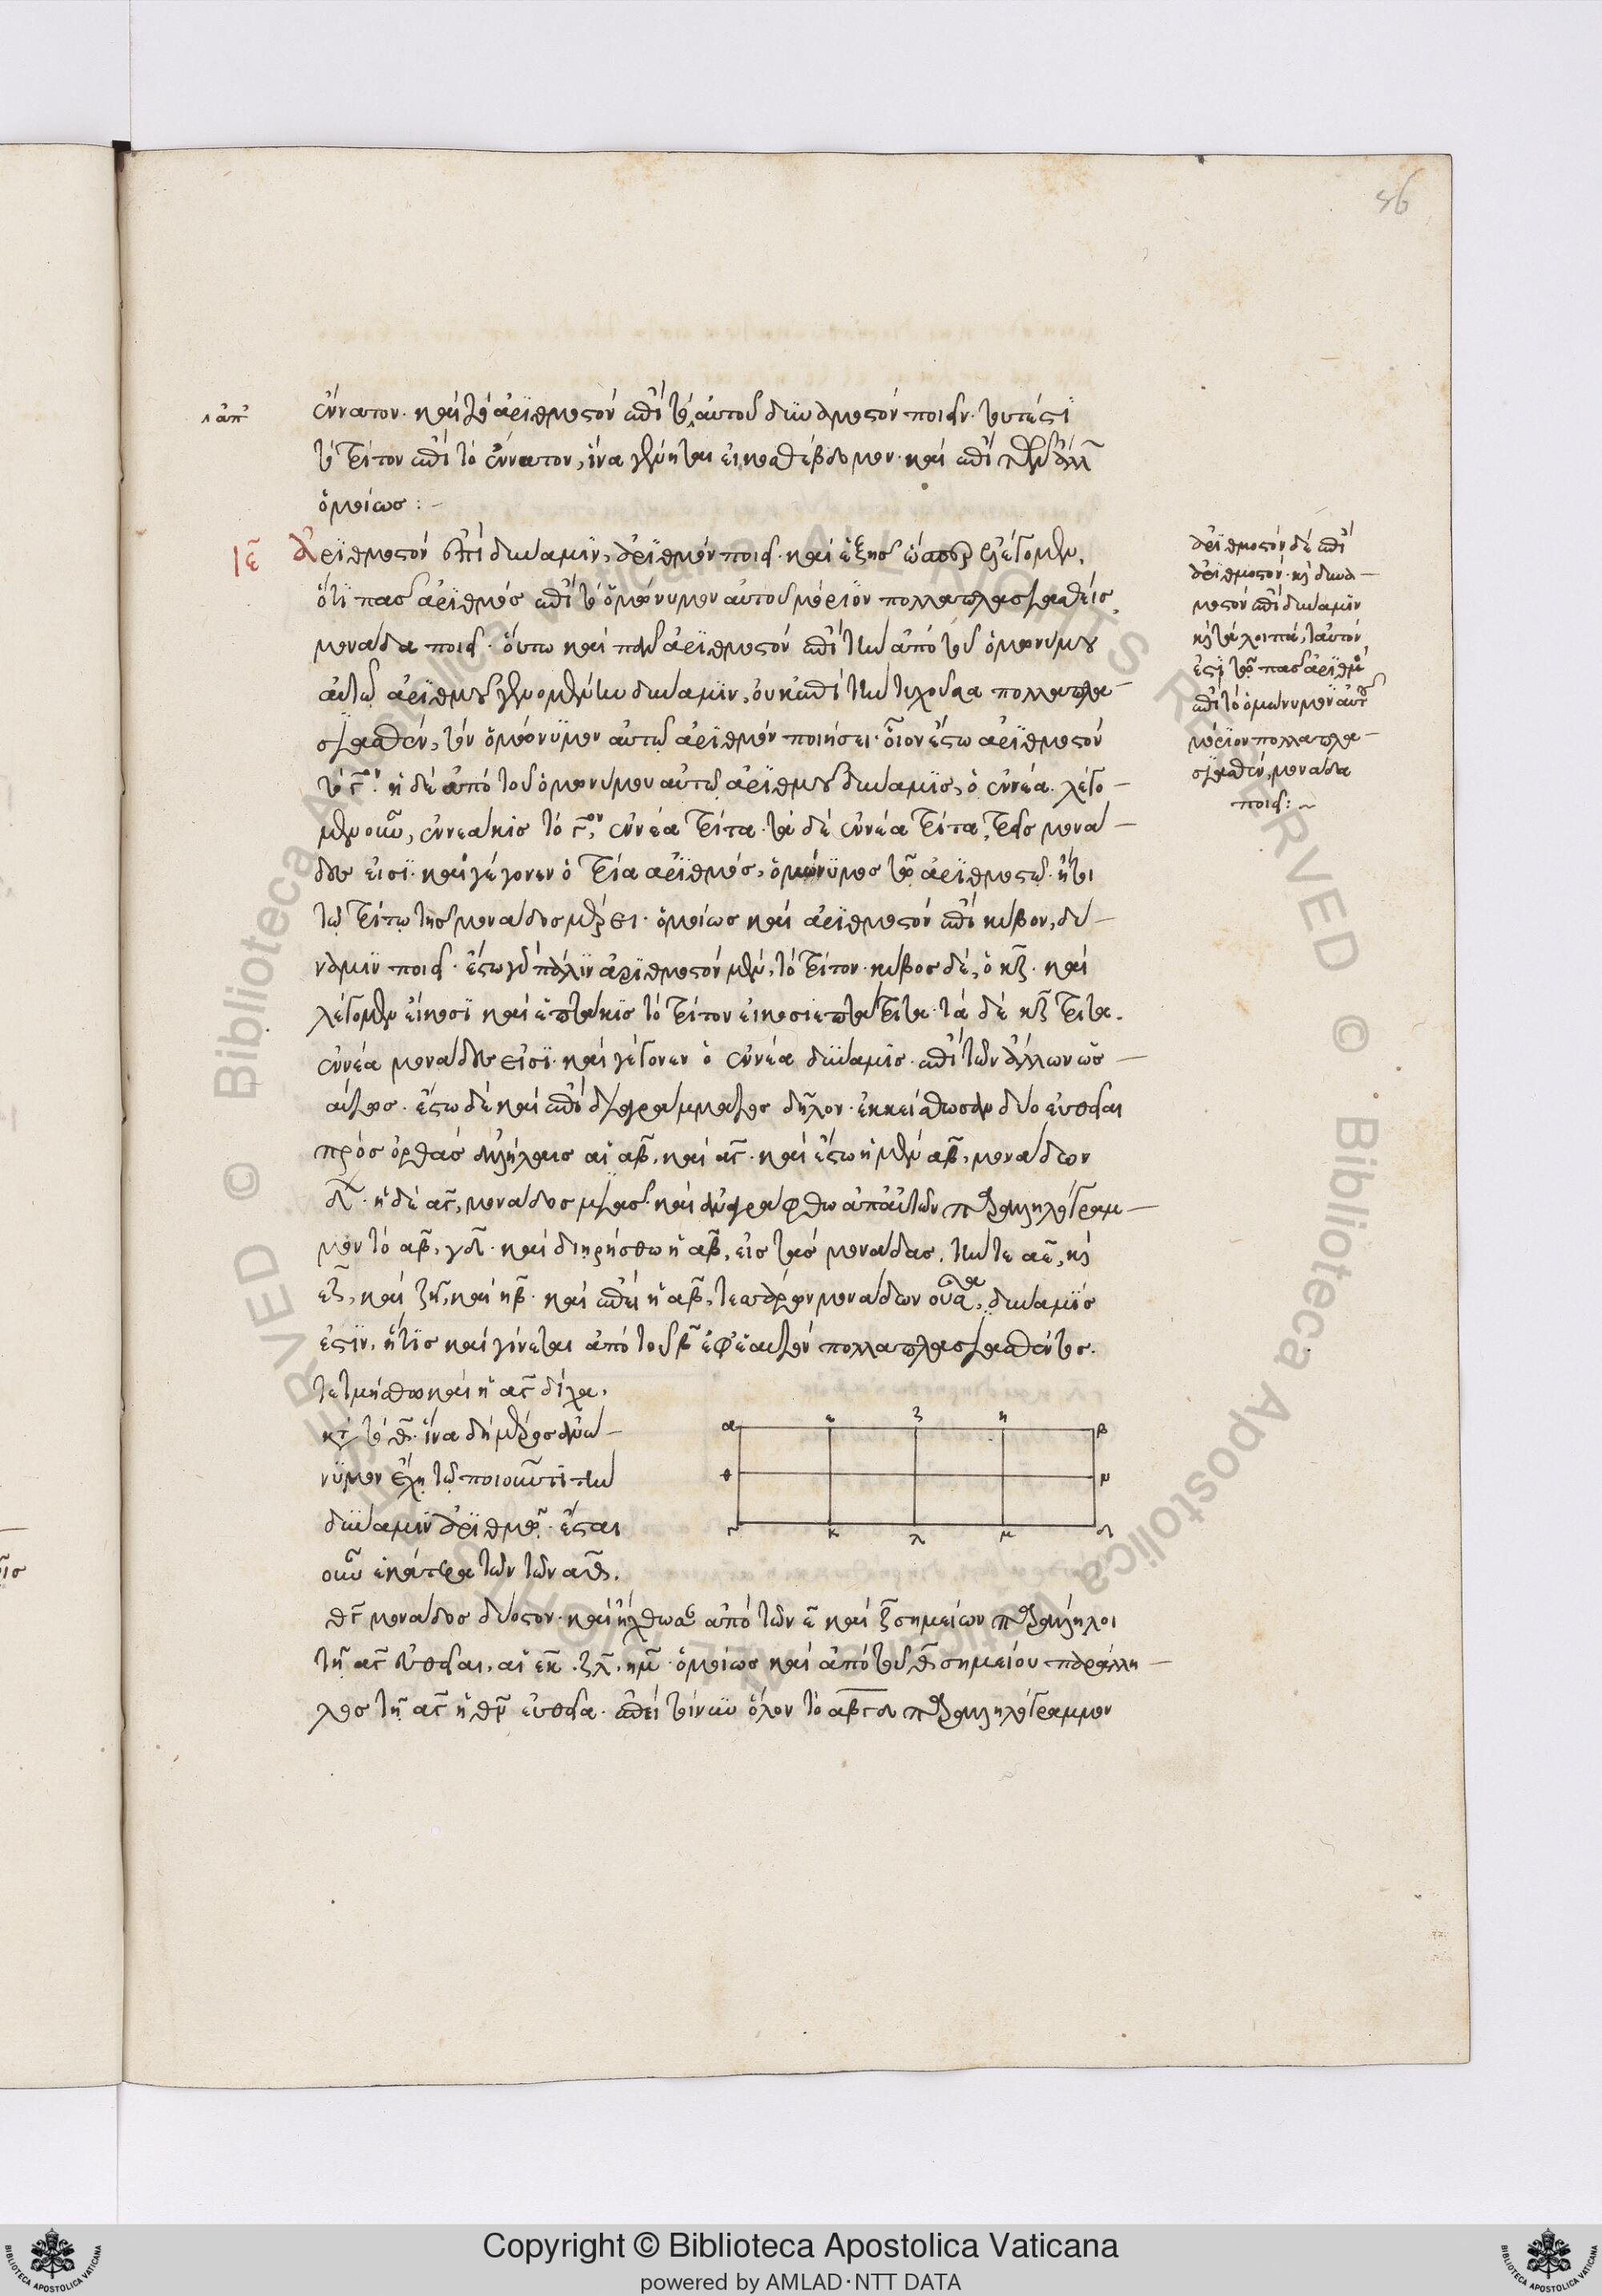 56
ἀπὸ
ἔννατον. καὶ τὸ ἀριθμοστὸν ἐπὶ τὸ αὐτοῦ δυναμοστὸν ποιεῖν. τουτέστι
τὸ τρίτον ἐπὶ τὸ ἔννατον, ἵνα γένηται εἰκοσθέβδομον. καὶ ἐπὶ τῶν ἄλλων
ὁμοίως :-
ιε Ἀριθμοστὸν ἐπὶ δύναμιν, ἀριθμὸν ποιεῖ. καὶ ἑξῆς ὥσπερ ἐλέγομεν,
ὅτι πᾶς ἀριθμὸς ἐπὶ τὸ ὁμώνυμον αὐτοῦ μόριον πολλαπλασιασθεὶς
μονάδα ποιεῖ. οὕτω καὶ πᾶν ἀριθμοστὸν ἐπὶ τὴν ἀπὸ τοῦ ὁμωνύμου
αὐτῷ ἀριθμοῦ γενομένην δύναμιν, οὐκ ἐπὶ τὴν τυχοῦσαν πολλαπλα-
σιασθὲν, τὸν ὁμώνυμον αὐτῷ ἀριθμὸν ποιήσει. οἷον ἔστω ἀριθμοστὸν
τὸ γον. ἡ δὲ ἀπὸ τοῦ ὁμωνύμου αὐτῷ ἀριθμοῦ δύναμις, ὁ ἐννέα. λέγο-
μεν οὖν, ἐννεάκις τὸ γον, ἐννέα τρίτα. τὰ δὲ ἐννέα τρίτα, τρεῖς μονά-
δες εἰσὶ. καὶ γέγονεν ὁ τρία ἀριθμὸς, ὁμώνυμος τῷ ἀριθμοστῷ. ἤτοι
τῷ τρίτῳ τῆς μονάδος μέρει. ὁμοίως καὶ ἀριθμοστὸν ἐπὶ κύβον, δύ-
ναμιν ποιεῖ. ἔστω γὰρ πάλιν ἀριθμοστὸν μὲν, τὸ τρίτον. κύβος δὲ, ὁ κζ. καὶ
λέγομεν εἴκοσι καὶ ἑπτάκις τὸ τρίτον εἰκοσιεπτὰ τρίτα. τὰ δὲ κζ τρίτα.
ἐννέα μονάδες εἰσὶ. καὶ γέγονεν ὁ ἐννέα δύναμις. ἐπὶ τῶν ἄλλων ὡσ-
αύτως. ἔστω δὲ καὶ ἐπὶ διαγράμματος δῆλον. ἐκκείσθωσαν δύο εὐθεῖαι
πρὸς ὀρθὰς ἀλλήλαις αἱ αβ, καὶ αγ. καὶ ἔστω ἡ μὲν αβ, μονάδων
δ. ἡ δὲ αγ, μονάδος μιᾶς. καὶ ἀναγράφθω ἀπ᾽ αὐτῶν παραλληλόγραμ-
μον τὸ αβ, γδ. καὶ διῃρήσθω ἡ αβ, εἰς τὰς μονάδας, τήν τε αε, καὶ
εζ, καὶ ζη, καὶ ηβ. καὶ ἐπεὶ ἡ αβ, τεσσάρων μονάδων οὖσα, δύναμίς
ἐστιν, ἥτις καὶ γίνεται ἀπὸ τοῦ β ἐφ᾽ ἑαυτὸν πολλαπλασιασθέντος.
τετμήσθω καὶ ἡ αγ δίχα,
κατὰ τὸ θ. ἵνα δὴ μέρος ὁμώ-
νυμον ἔχῃ τῷ ποιοῦντι τὴν
δύναμιν ἀριθμῷ. ἔσται
οὖν ἑκάτερα τῶν τῶν αθ,
θγ μονάδος δυοστόν. καὶ ἤχθωσαν ἀπὸ τῶν ε καὶ ζ σημείων παράλληλοι
τῇ αγ εὐθεῖαι, αἱ εκ. ζλ, ημ. ὁμοίως καὶ ἀπὸ τοῦ θ σημείου παράλλη-
λος τῇ αγ ἡ θν εὐθεῖα. ἐπεὶ τοίνυν ὅλον τὸ αβγδ παραλληλόγραμμον
α ε ζ η β
θ ν
γ κ λ μ δ
ἀριθμοστὸν δὲ ἐπὶ
ἀριθμοστόν. καὶ δυνα-
μοστὸν ἐπὶ δύναμιν
καὶ τὰ λοιπὰ, ταυτόν
ἐστι τῷ πᾶς ἀριθμὸς
ἐπὶ τὸ ὁμώνυμον αὐτοῦ
μόριον πολλαπλα-
σιασθὲν, μονάδα
ποιεῖ: ~
© Biblioteca Apostolica Vaticana ALL RIGHTS RESERVED
Copyright © Biblioteca Apostolica Vaticana
powered by AMLAD·NTT DATA
BIBLIOTECA APOSTOLICA VATICANA
BIBLIOTECA APOSTOLICA VATICANA